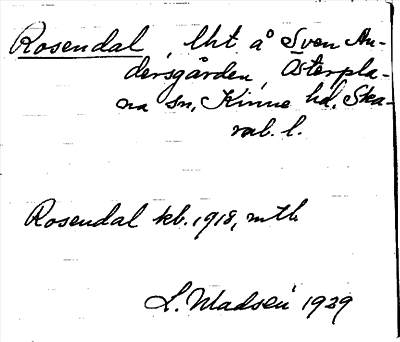 Rosendal, lht å Sven An-
dersgården, Österpla-
na sn, Kinne hd. Ska-
rab. l.
Rosendal kb. 1918, mtl.
L. Madsén 1929